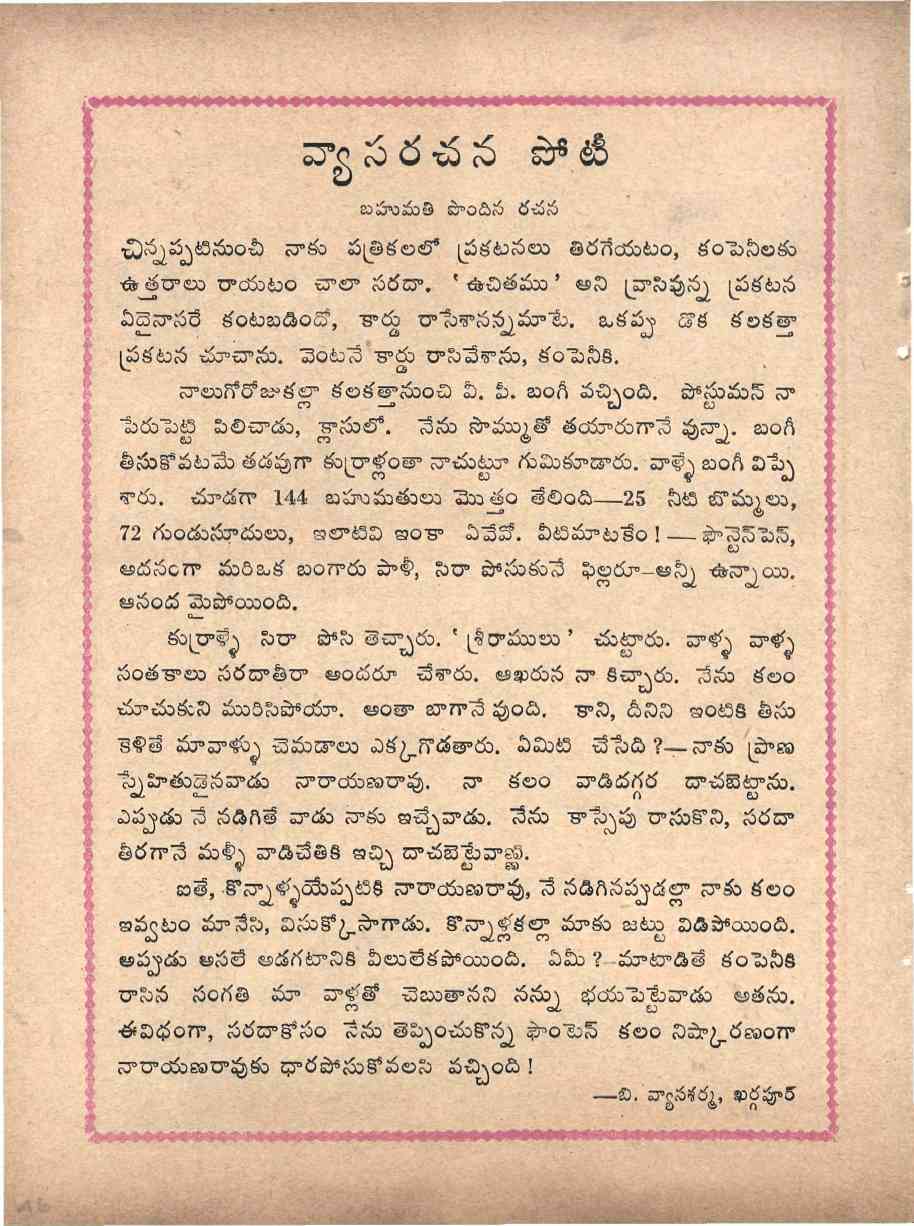 వ్యాసరచన పోటీ
బహుమతి పొందిన రచన
చిన్నప్పటినుంచీ నాకు పత్రికలలో ప్రకటనలు తిరగేయటం, కంపెనీలకు
ఉత్తరాలు రాయటం చాలా సరదా. ‘ఉచితము’ అని వ్రాసివున్న ప్రకటన
ఏదైనాసరే కంటబడిందో, కార్డు రాసేశానన్నమాటే. ఒకప్పు డొక కలకత్తా
ప్రకటన చూచాను. వెంటనే కార్డు రాసివేశాను, కంపెనీకి.
నాలుగోరోజుకల్లా కలకత్తానుంచి వీ. పీ. బంగీ వచ్చింది. పోస్టుమన్ నా
పేరుపెట్టి పిలిచాడు, క్లాసులో. నేను సొమ్ముతో తయారుగానే వున్నా. బంగీ
తీసుకోవటమే తడవుగా కుర్రాళ్లంతా నాచుట్టూ గుమికూడారు. వాళ్ళే బంగీ విప్పే
శారు. చూడగా 144 బహుమతులు మొత్తం తేలింది—25 నీటి బొమ్మలు,
72 గుండుసూదులు, ఇలాటివి ఇంకా ఏవేవో. వీటిమాటకేం! — ఫౌన్టెన్‌పెన్,
అదనంగా మరిఒక బంగారు పాళీ, సిరా పోసుకునే ఫిల్లరూ—అన్నీ ఉన్నాయి.
ఆనంద మైపోయింది.
కుర్రాళ్ళే సిరా పోసి తెచ్చారు. ‘శ్రీరాములు’ చుట్టారు. వాళ్ళ వాళ్ళ
సంతకాలు సరదాతీరా అందరూ చేశారు. ఆఖరున నా కిచ్చారు. నేను కలం
చూచుకుని మురిసిపోయా. అంతా బాగానే వుంది. కాని, దీనిని ఇంటికి తీసు
కెళితే మావాళ్ళు చెమడాలు ఎక్కగొడతారు. ఏమిటి చేసేది?—నాకు ప్రాణ
స్నేహితుడైనవాడు నారాయణరావు. నా కలం వాడిదగ్గర దాచబెట్టాను.
ఎప్పుడు నే నడిగితే వాడు నాకు ఇచ్చేవాడు. నేను కాస్సేపు రాసుకొని, సరదా
తీరగానే మళ్ళీ వాడిచేతికి ఇచ్చి దాచబెట్టేవాణ్ణి.
ఐతే, కొన్నాళ్ళయేప్పటికి నారాయణరావు, నే నడిగినప్పుడల్లా నాకు కలం
ఇవ్వటం మానేసి, విసుక్కోసాగాడు. కొన్నాళ్లకల్లా మాకు జట్టు విడిపోయింది.
అప్పుడు అసలే అడగటానికి వీలులేకపోయింది. ఏమీ?—మాటాడితే కంపెనీకి
రాసిన సంగతి మా వాళ్లతో చెబుతానని నన్ను భయపెట్టేవాడు అతను.
ఈవిధంగా, సరదాకోసం నేను తెప్పించుకొన్న ఫౌంటెన్ కలం నిష్కారణంగా
నారాయణరావుకు ధారపోసుకోవలసి వచ్చింది!
—బి. వ్యాసశర్మ, ఖర్గపూర్